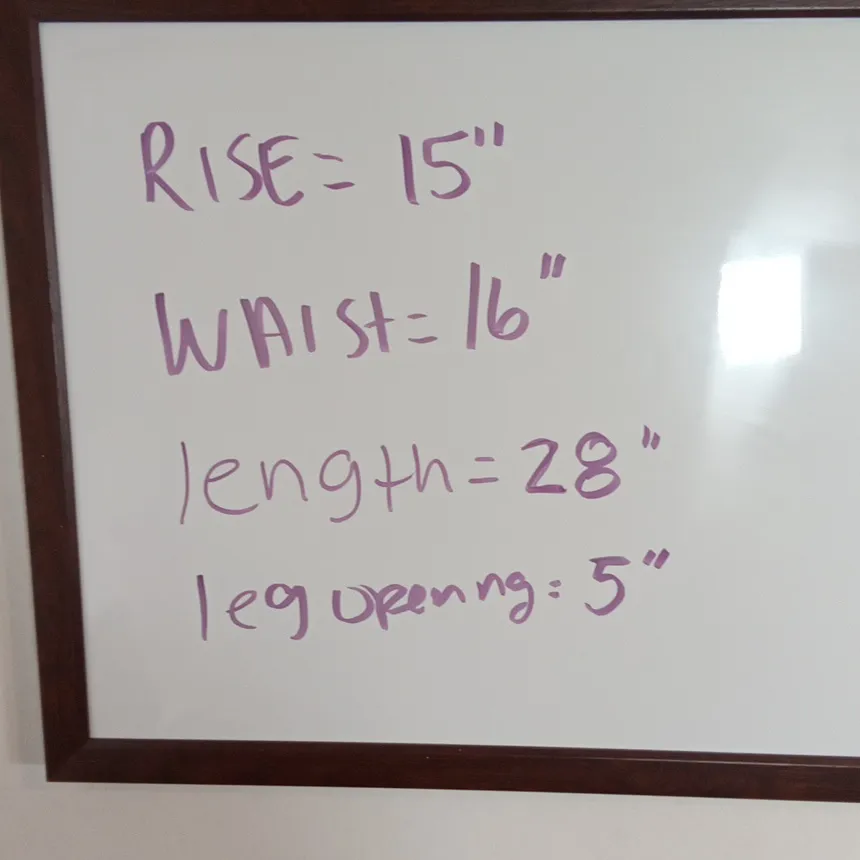 RISE= 15"
WAIST= 16"
length= 28"
leg openng: 5"